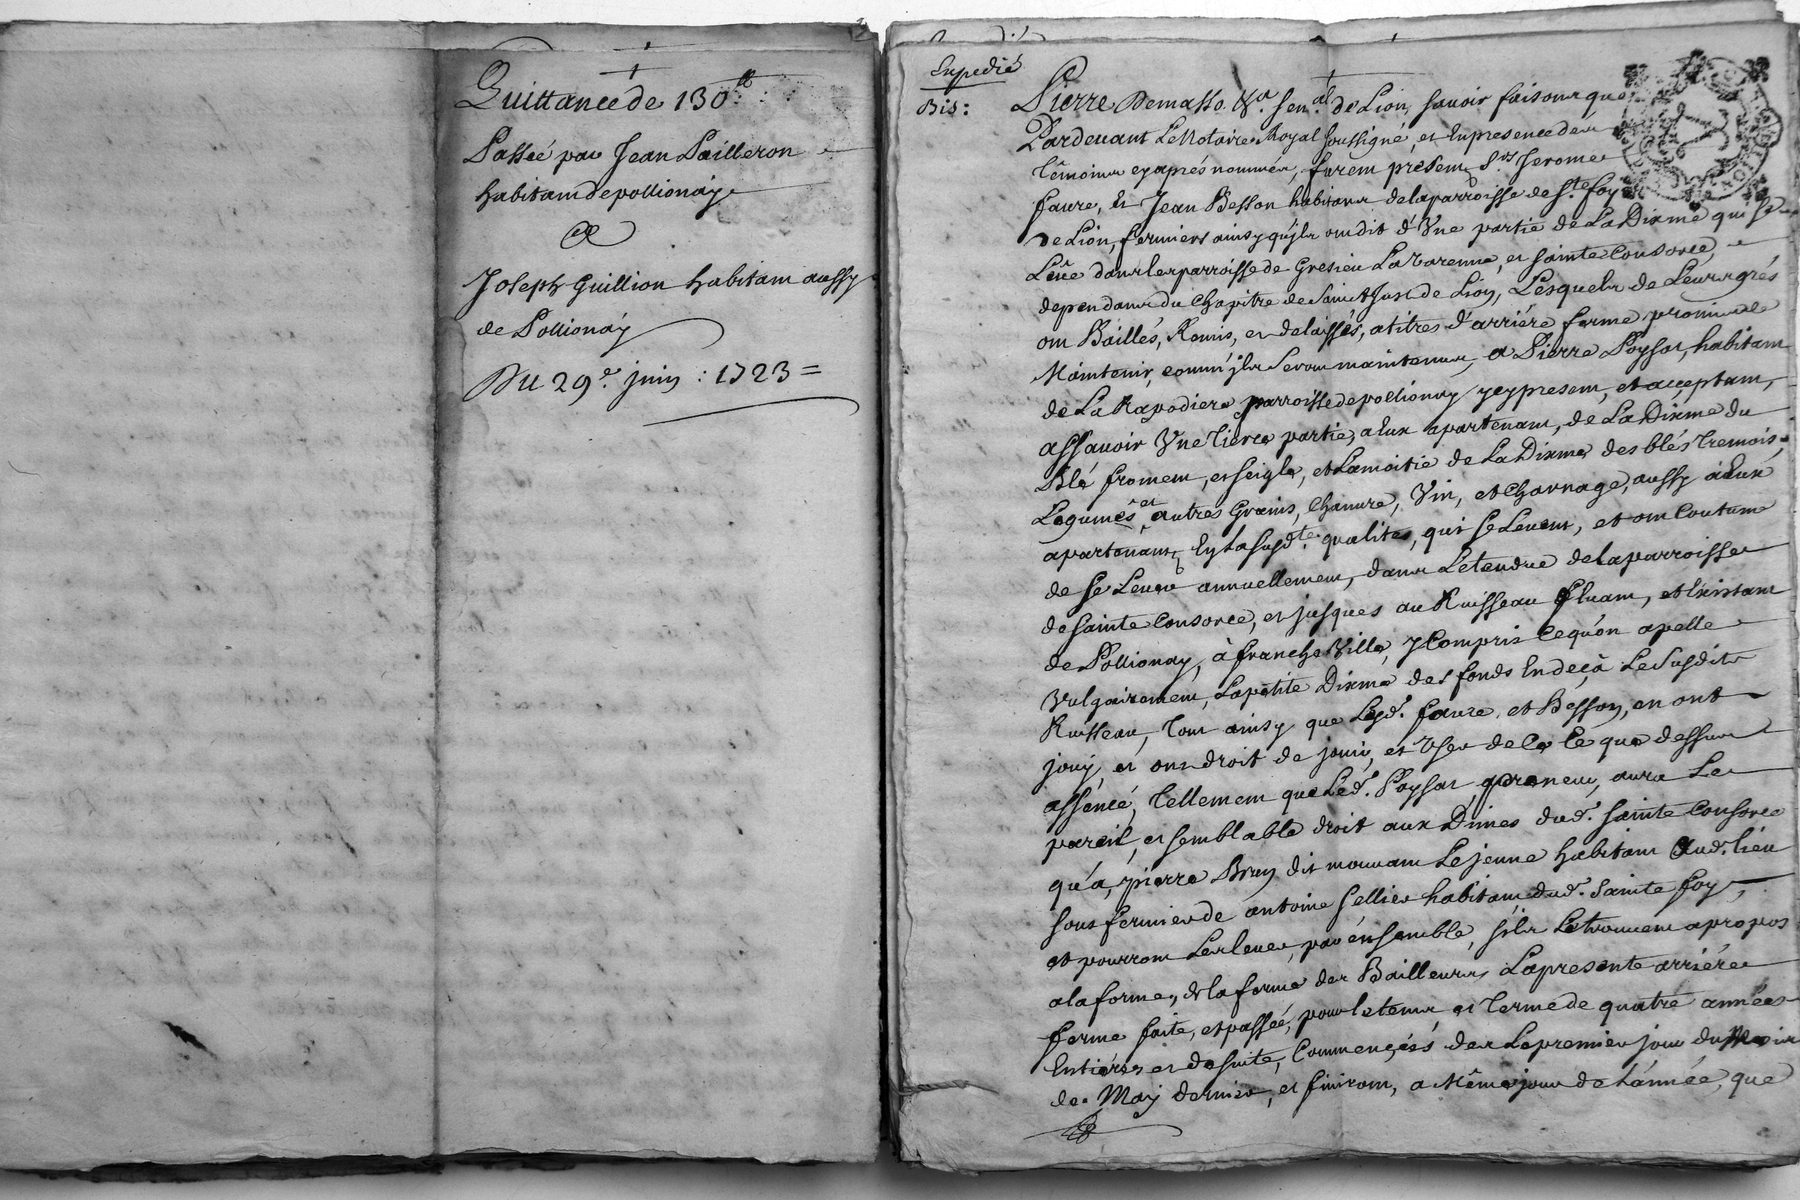 Quittance de 130ᵗᵗ
Passée par Jean Pailleron
habitant de pollionay
a
Joseph Guillion habitant aussy
de Pollionay
Du 29e. juin : 1723 =
Expedié
Bis :
Pierre Demasso &a. Senal. de Lion, savoir faisons que
Pardevant Le Notaire Royal soussigné, et En presence des
têmoins cy aprés nommés, furent presents Srs Jerome
faure, Et Jean Besson habitans de la parroisse de Ste foy
De Lion, fermiers ainsy qu'jls ont dit d'Vne partie de La Dixme qui se
Leüe dans les parroisse de Gresieu La Varenne, et sainte Consorce,
dependans du Chapitre de Saint Just de Lion, Lesquels de Leurs grés
ont Baillés, Remis, et delaissés, a titres d'arriére ferme promis de
Maintenir, comm' jls seront maintenus, a Pierre Poysat, habitant
de La Rapodiere parroisse de pollionay jcy present, et acceptant,
assavoir Vne tierce partie, a Eux apartenant, de La Dixme du
Blé froment, et seigle, et La moitie de La Dixme des blés tremois,
Legumes et autres Grains, Chanvre, Vin, et Charnage, aussy à Eux
apartenants En La susdte. qualites, qui se Levent, et ont Coutume
de se Lever annuellement, dans L'etendue de la parroisse
de sainte Consorce, et jusques au Ruisseau fluant, et Existant
de Pollionay, à franche Ville, y Compris ce qu'on apelle
Vulgairement, La petite Dixme des fonds En deçà Le susdit
Ruisseau, tout ainsy que Lesd. faure, et Besson, en ont
jouy, et ont droit de jouir, et Vser de Ce que dessus
assencé, tellement que Led. Poysat preneur, aura Le
pareil, et semblable droit aux Dimes dud. sainte Consorce
qu'a, pierre Brun dit mouvant Le jeune habitant Aud. lieu
sous fermier de antoine sellier habitant dud. Sainte foy,
et pourront Les lever, par énsemble, s'ils Le trouvent apropos
a la forme, de la ferme des Bailleurs, La presente arriére
ferme faite, et passée, pour le tems et terme de quatre années
Entiéres et de suite, Commencées des Le premier jour du Mois
de May dernier, et finiront, a Même jour de L'année, que